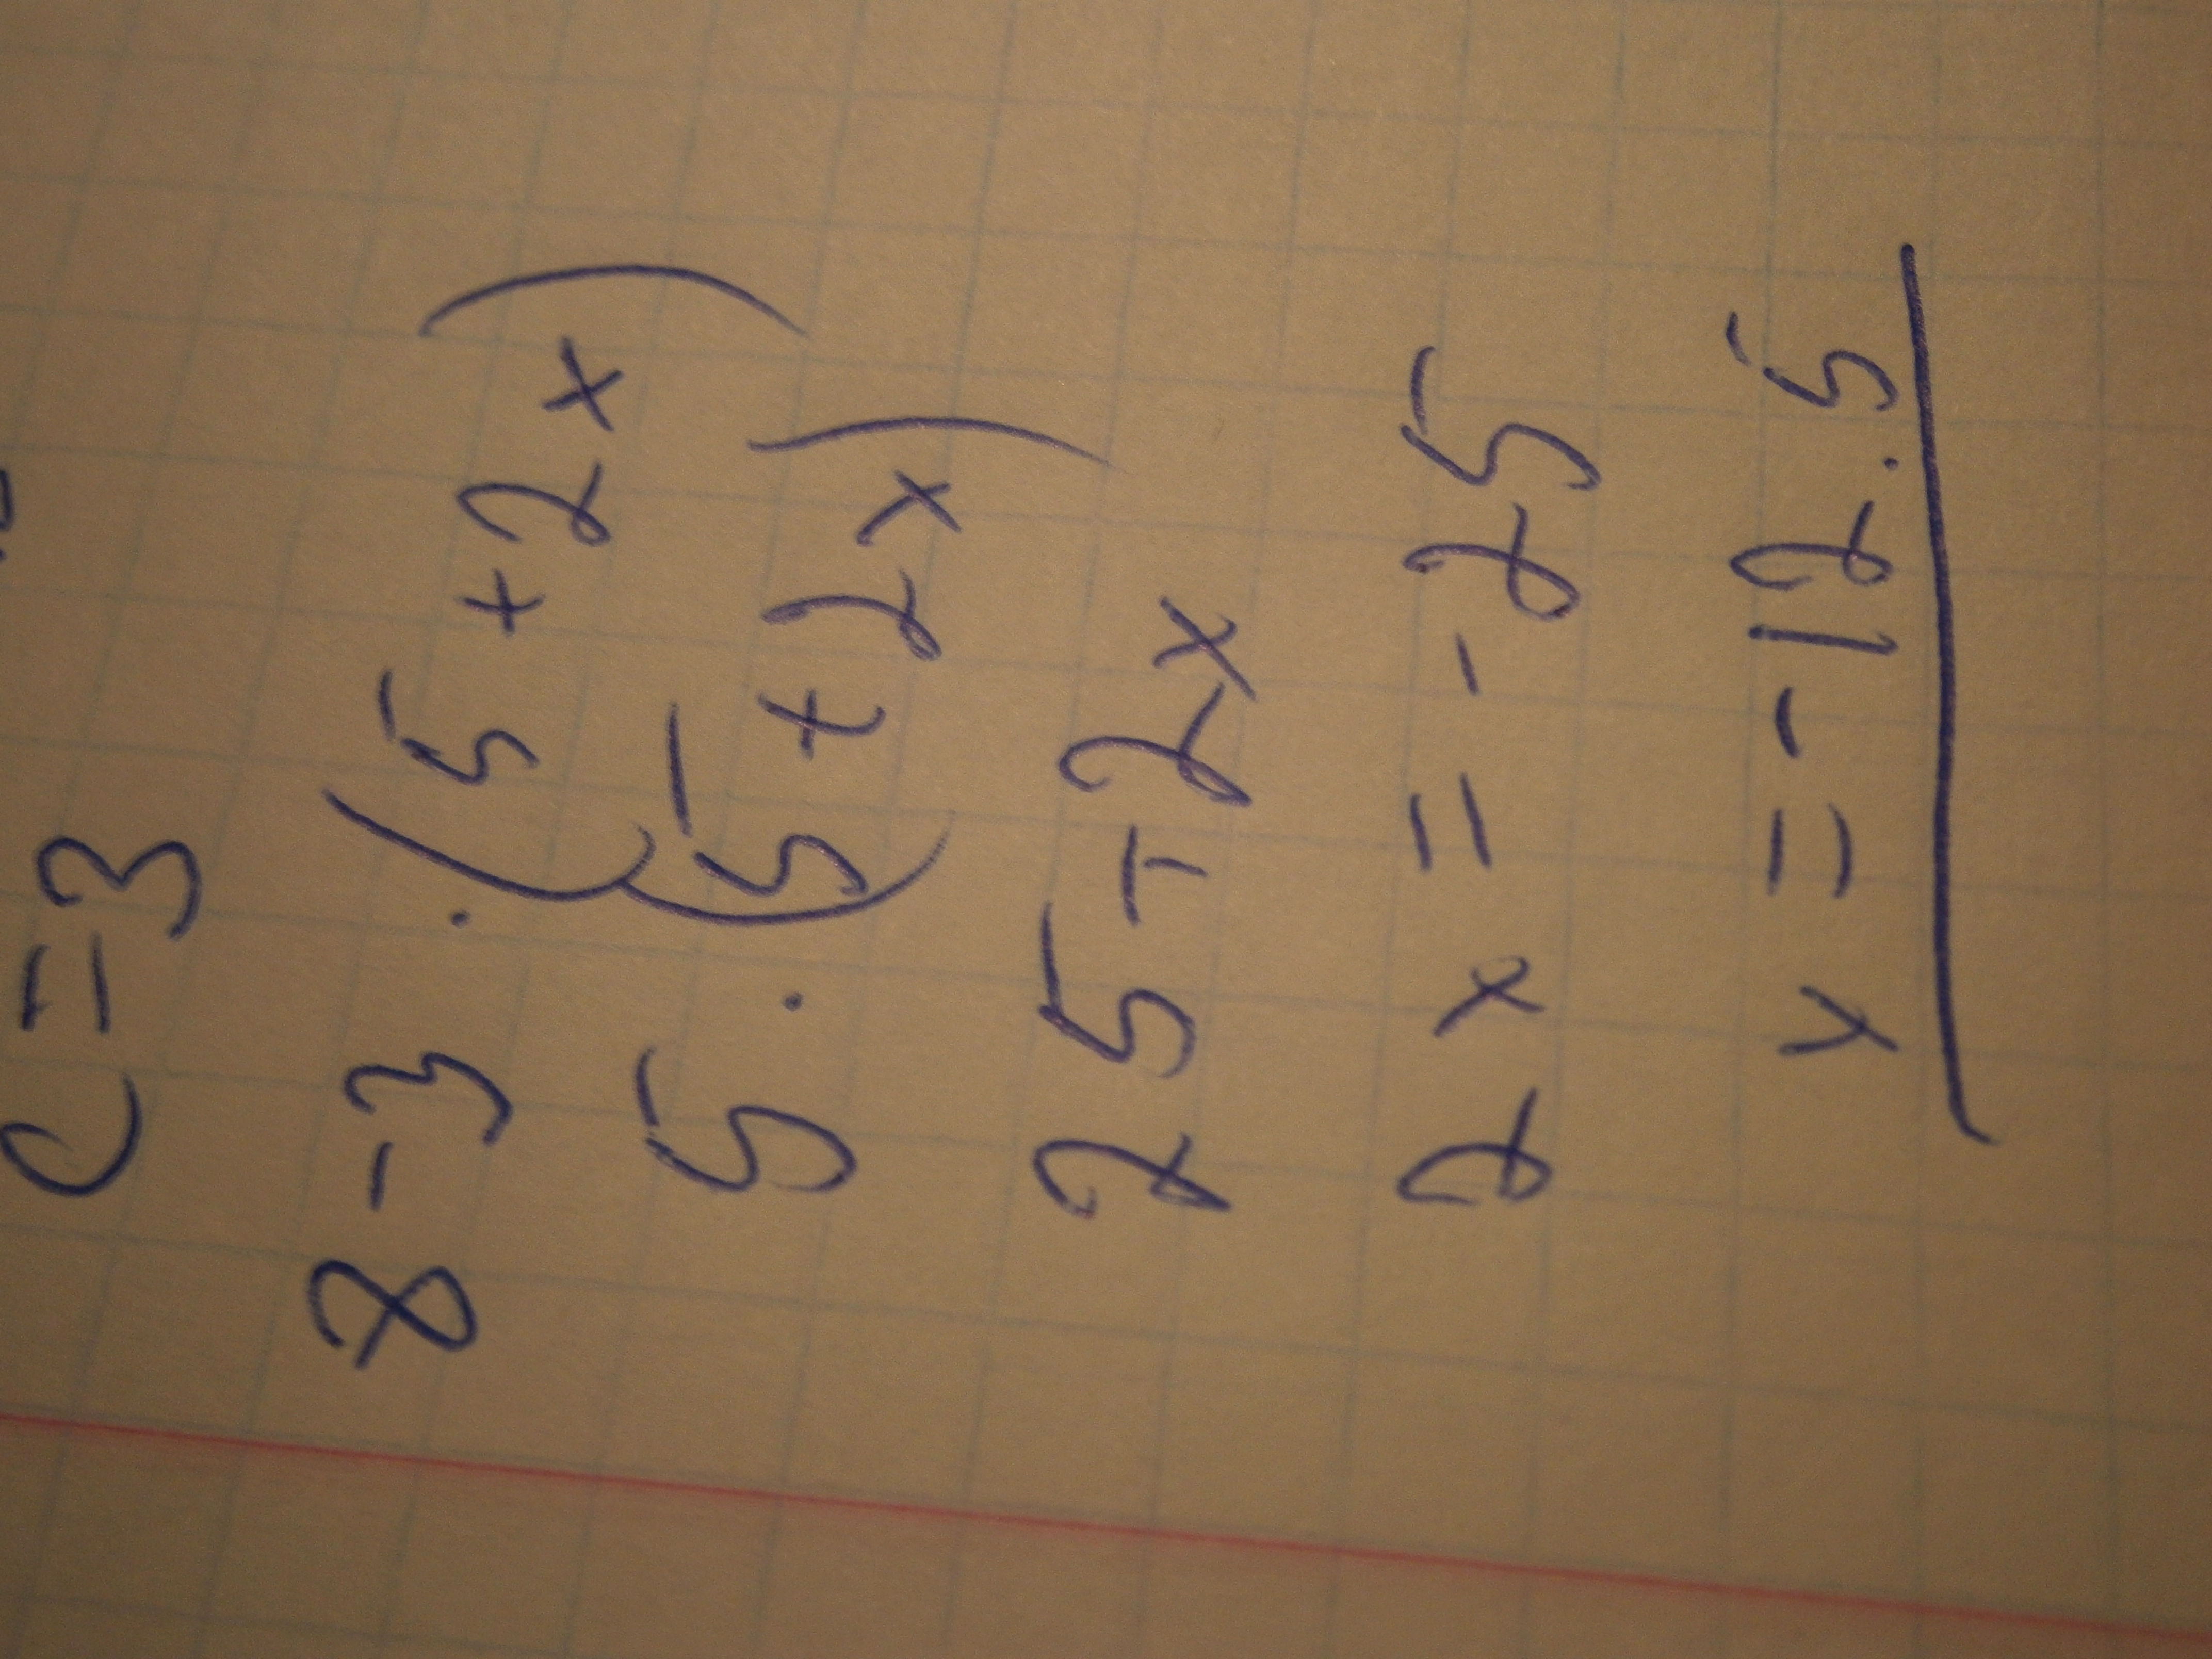 c = 3
8 - 3 · (5 + 2x)
5 · (5 + 2x)
25 + 2x
2x = - 25
x = - 12.5